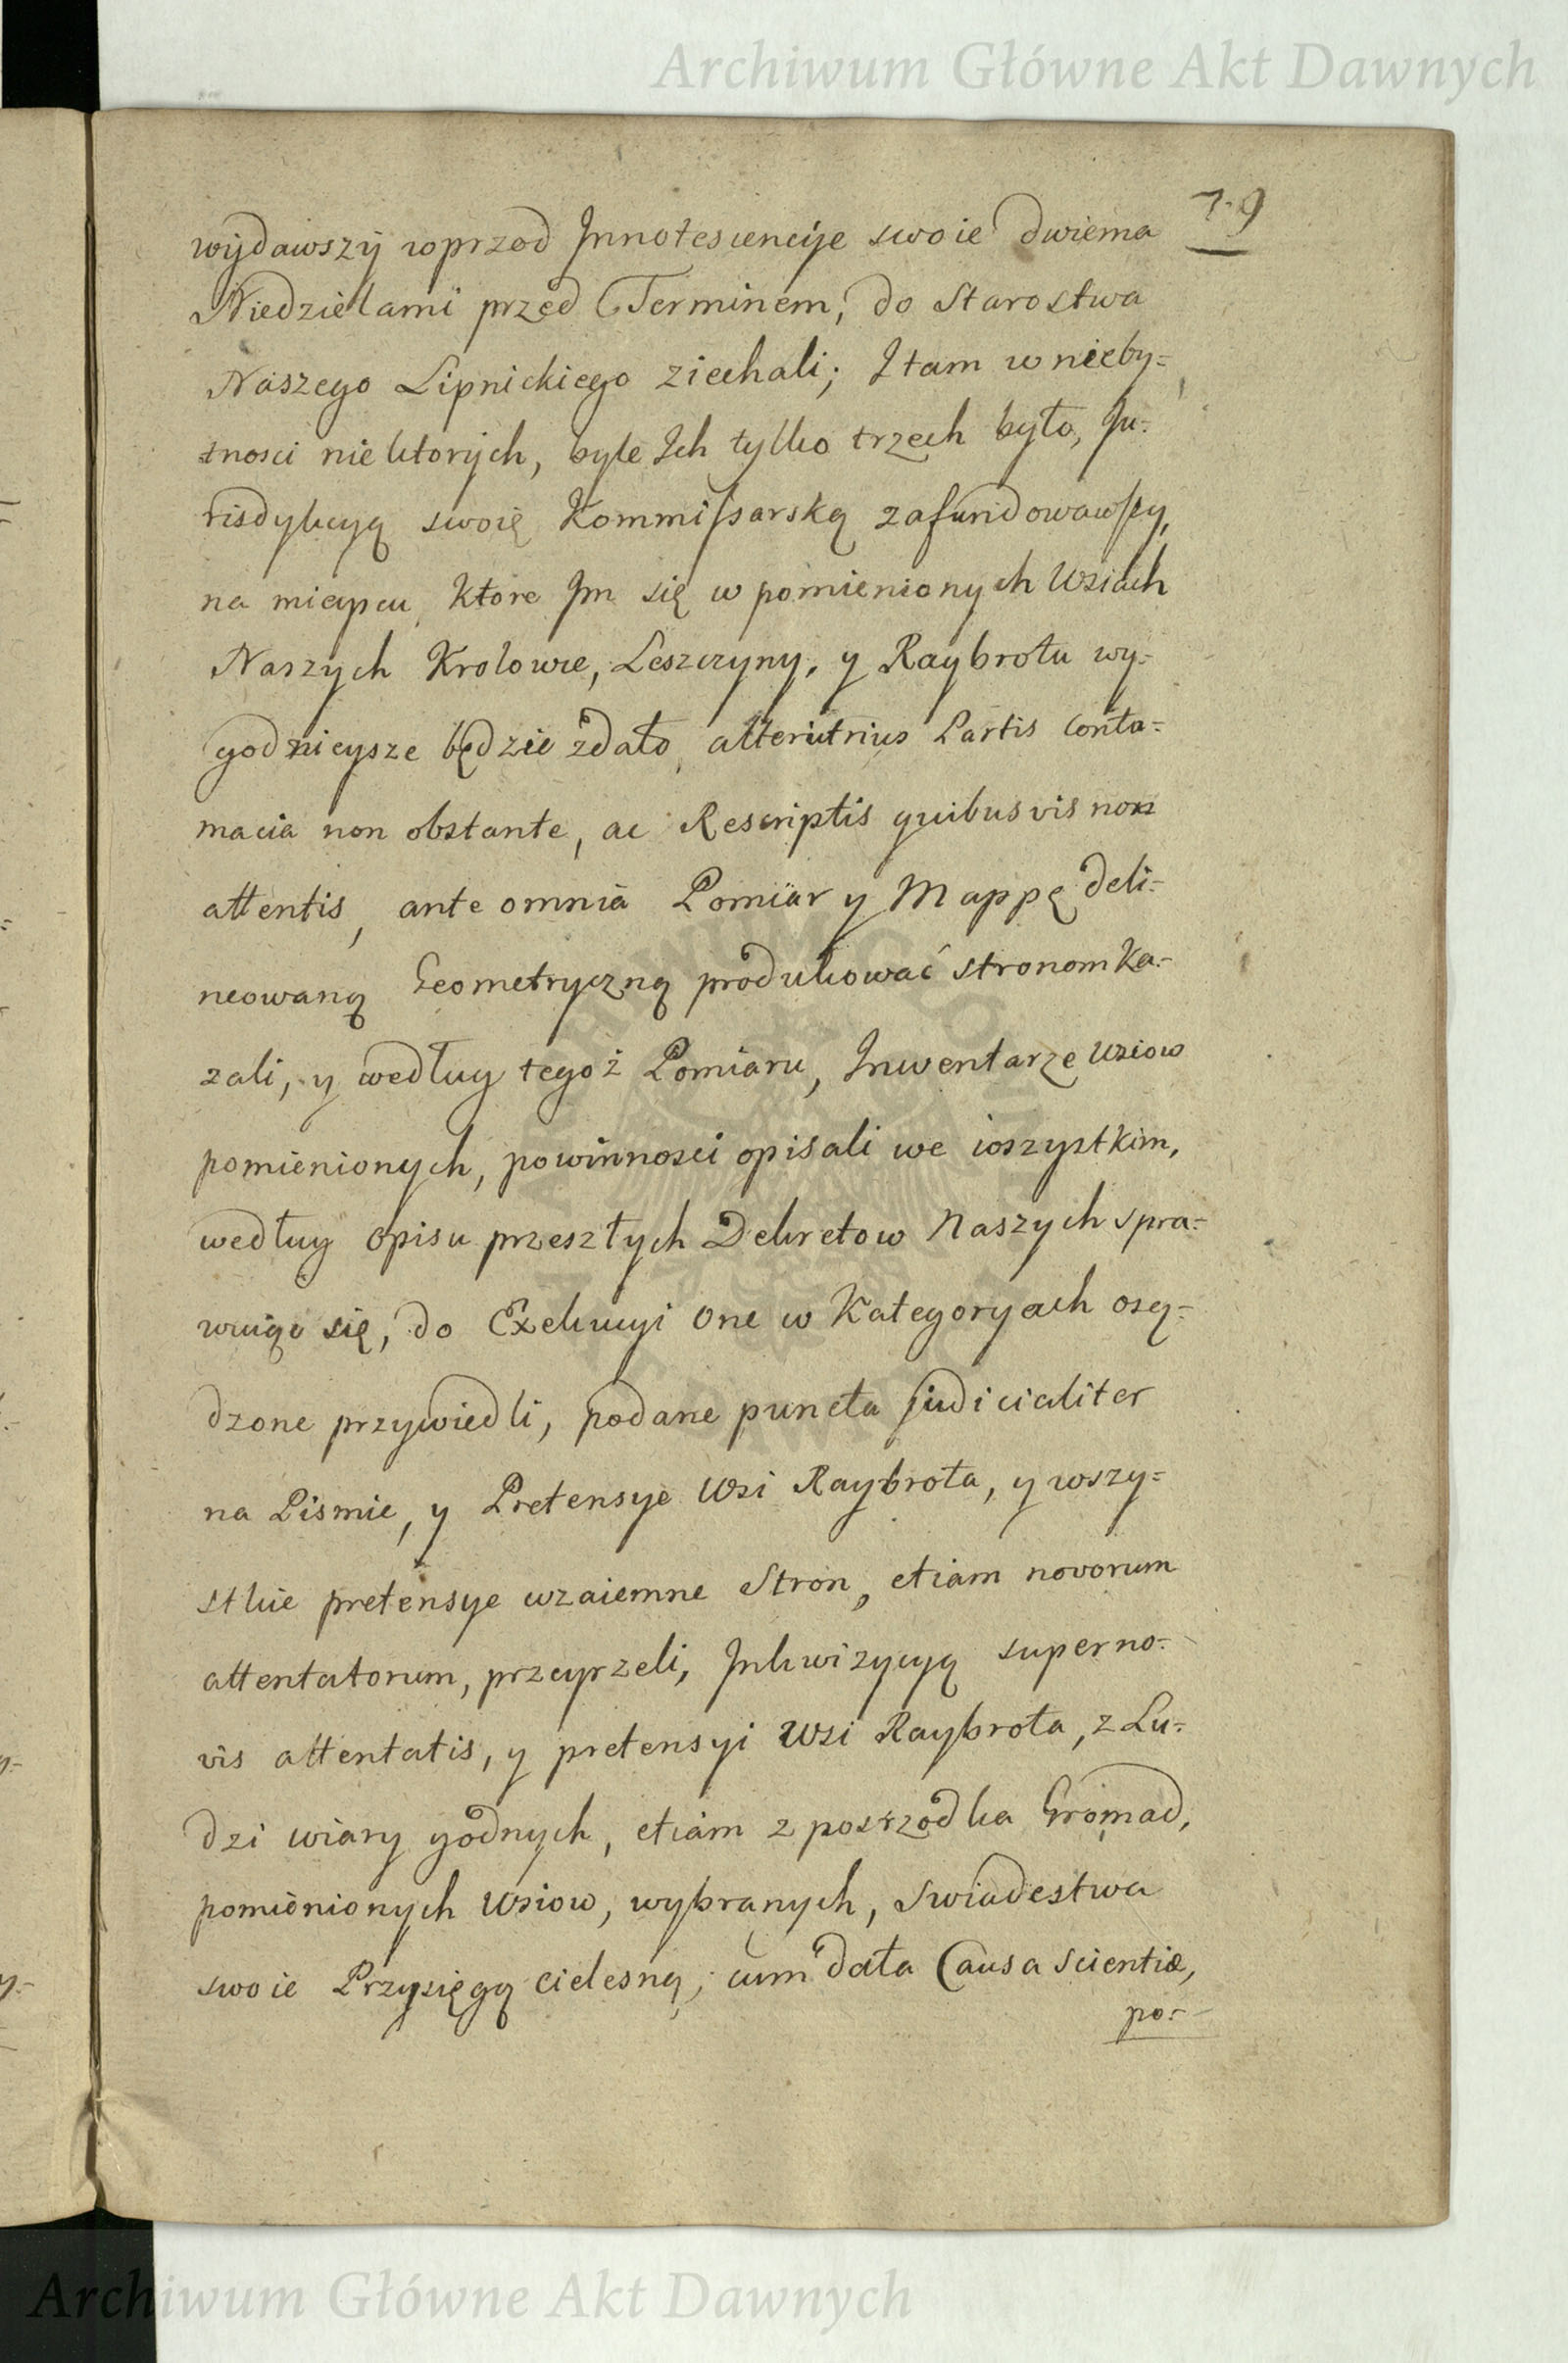 Archiwum Główne Akt Dawnych
79
wydawszy wprzod Innotescencye swoie dwiema
Niedzielami przed Terminem, do Starostwa
Naszego Lipnickiego ziechali; I tam w nieby-
tnosci niektorych, byle Ich tylko trzech było, Ju-
risdykcyą swoię Kommissarską zafundowawszy,
na mieyscu, ktore Im się w pomienionych Wsiach
Naszych Krolowce, Leszczyny, y Raybrotu wy-
godnieysze będzie zdało, alterutrius Partis contu-
macia non obstante, ac Rescriptis quibusvis non
attentis, ante omnia Pomiar y Mappę deli-
neowaną Geometryczną produkować stronom ka-
zali, y według tegoż Pomiaru, Inwentarze Wsiow
pomienionych, powinnosci opisali we wszystkim,
według opisu przeszłych Dekretow Naszych spra-
wuiąc się, do Exekucyi one w Kategoryach osą-
dzone przywiedli, podane puncta judicialiter
na Pismie, y Pretensye Wsi Raybrota, y wszy-
stkie pretensye wzaiemne Stron, etiam novorum
attentatorum, przeyrzeli, Inkwizycyą super no-
vis attentatis, y pretensyi Wsi Raybrota, z Lu-
dzi wiary godnych, etiam z posrzodka Gromad,
pomienionych Wsiow, wybranych, swiadestwa
swoie Przysięgą cielesną, cum data Causa scientiæ,
po-
Archiwum Główne Akt Dawnych